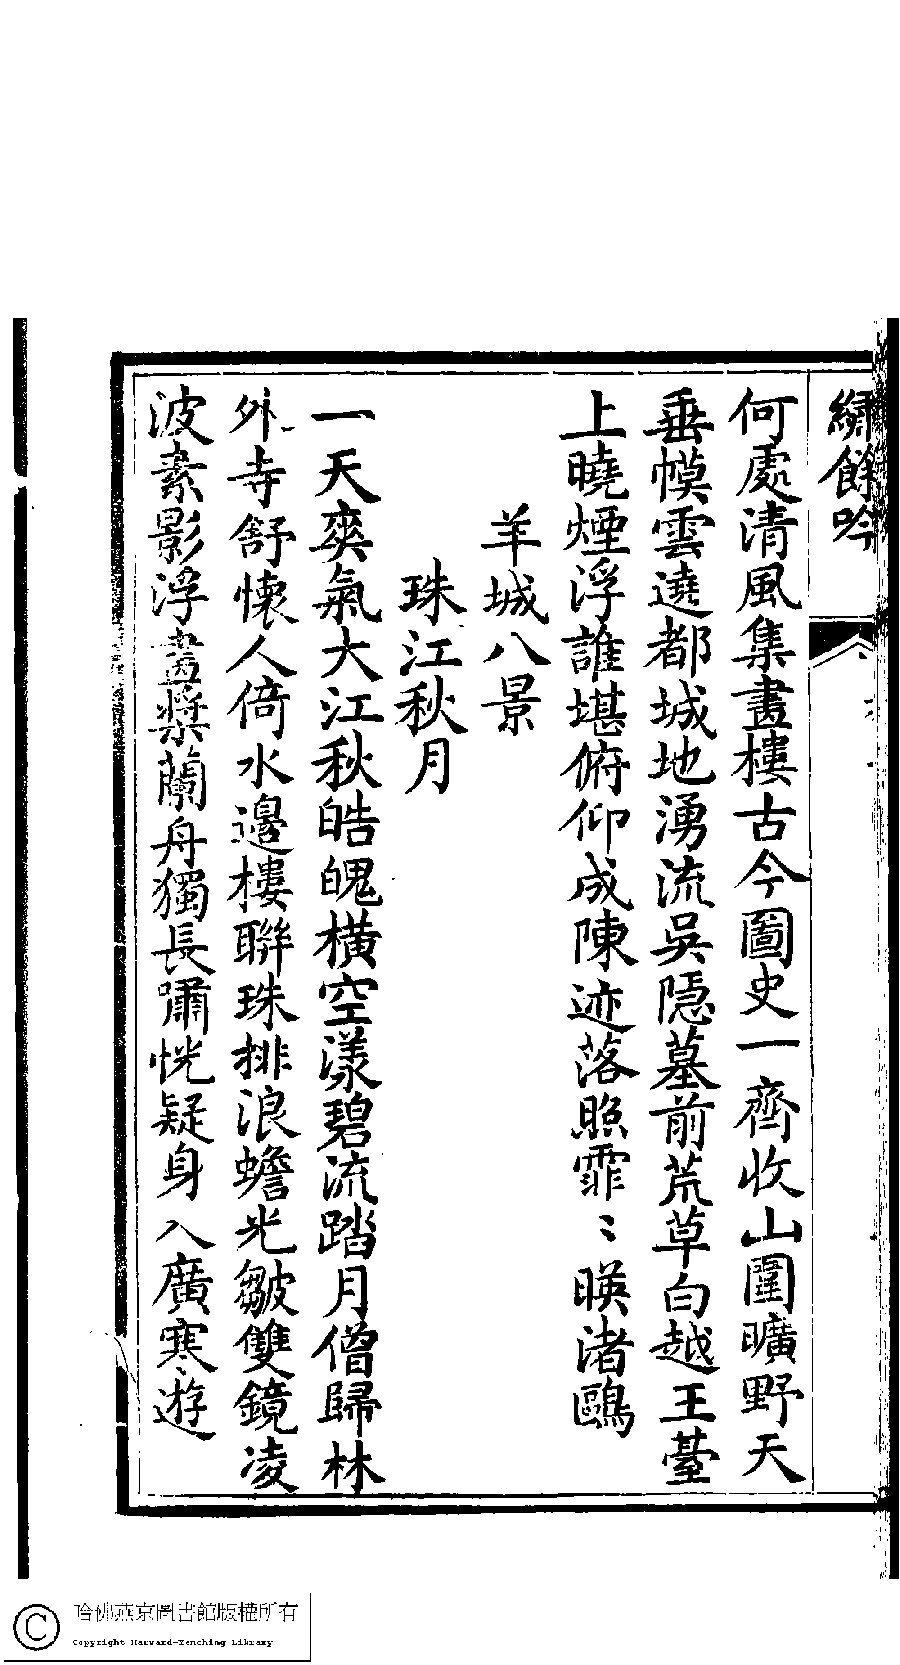 繡餘吟
何處清風集畫樓古今圖史一齊收山圍曠野天
垂幙雲遶都城地湧流吳隱墓前荒草白越王臺
上曉煙浮誰堪俯仰成陳迹落照霏〻暎渚鷗
羊城八景
珠江秋月
一天爽氣大江秋皓魄橫空漾碧流踏月僧歸林
外寺舒懷人倚水邊樓聯珠排浪蟾光皺雙鏡凌
波素影浮畫槳蘭舟獨長嘯恍疑身入廣寒遊
哈佛燕京圖書館版權所有
Copyright Harvard-Yenching Library